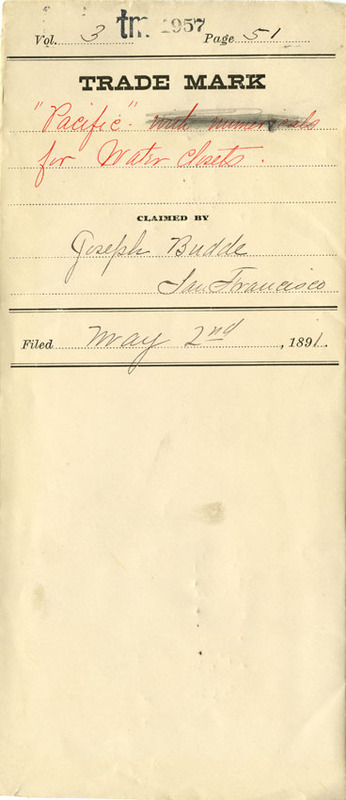 Vol. 3 tm 1957 Page 51
TRADE MARK
"Pacific" with numerals
for Water Closets.
CLAIMED BY
Joseph Budde
San Francisco
Filed May 2nd, 1891.